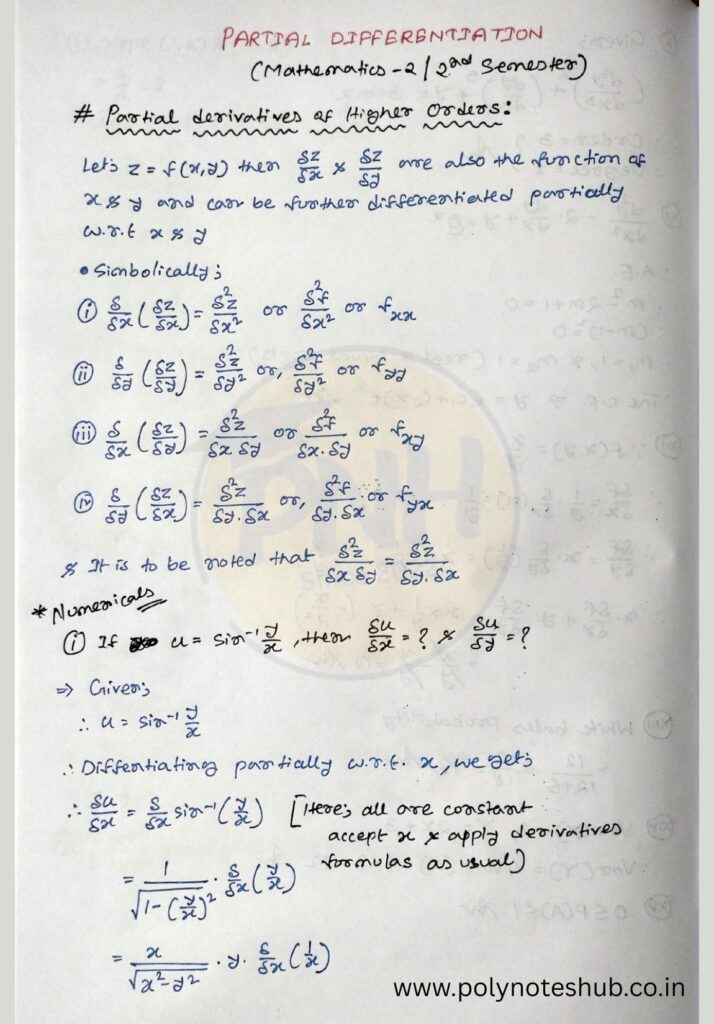 PARTIAL DIFFERENTIATION
(Mathematics-2/2nd Semester)
# Partial derivatives of Higher Orders:
Let's z = f(x,y) then δz/δx & δz/δy are also the function of
x & y and can be further differentiated partially
w.r.t x & y
• Simbolically;
(i) δ/δx (δz/δx) = δ²z/δx² or δ²f/δx² or fxx
(ii) δ/δy (δz/δy) = δ²z/δy² or, δ²f/δy² or fyy
(iii) δ/δx (δz/δy) = δ²z/δx δy or δ²f/δx.δy or fxy
(iv) δ/δy (δz/δx) = δ²z/δy.δx or, δ²f/δy.δx or fyx
& It is to be noted that δ²z/δx δy = δ²z/δy.δx
* Numericals
(i) If u = sin⁻¹ y/x, then δu/δx = ? & δu/δy = ?
⇒ Given;
∴ u = sin⁻¹ y/x
∴ Diffentiating partially w.r.t. x, we get;
∴ δu/δx = δ/δx sin⁻¹ (y/x) [Here; all are constant
accept x & apply derivatives
formulas as usual)
= 1/√1-(y/x)² · δ/δx (y/x)
= x/√x²-y² · y · δ/δx (1/x)
www.polynoteshub.co.in